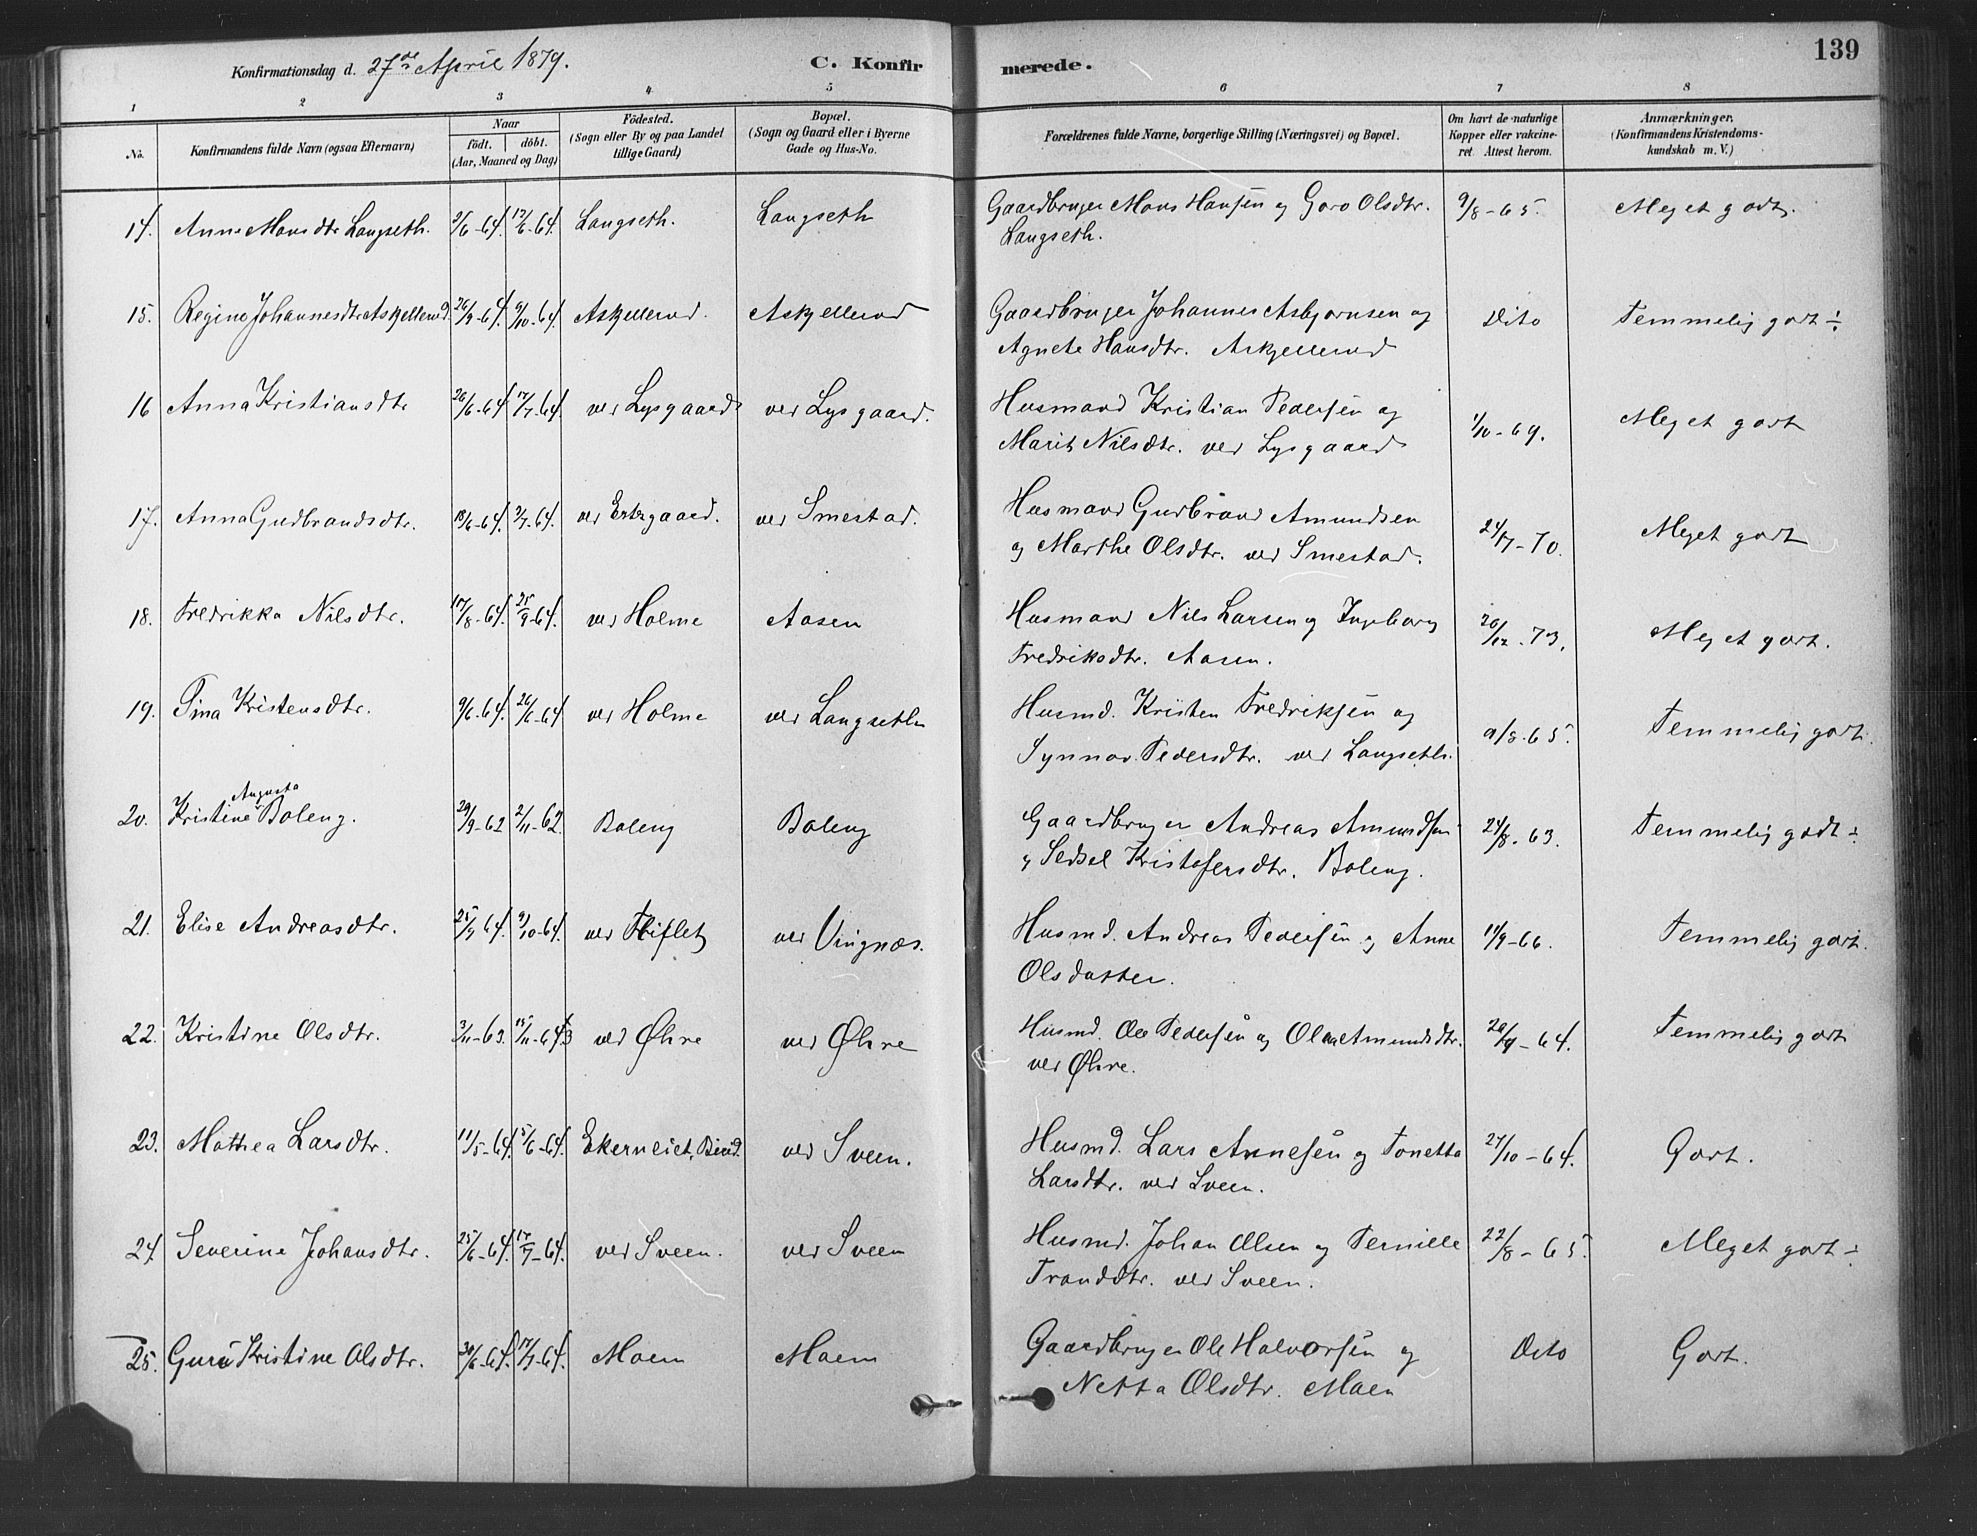 Konfirmationsdag d. 27de April 1879. C. Konfirmerede. 139
1 2 3 4 5 6 7 8
No. Konfirmandens fulde Navn (ogsaa Efternavn) Naar födt. döbt. (Aar, Maaned og Dag) Födested. (Sogn eller By og paa Landet tillige Gaard) Bopæl. (Sogn og Gaard eller i Byerne Gade og Hus-No. Forældrenes fulde Navne, borgerlige Stilling (Næringsvei) og Bopæl. Om havt de naturlige Kopper eller vaccineret. Attest herom. Anmærkninger. (Konfirmandens Kristendomskundskab m. V.)
14. Anne Monsdtr Langseth. 2/6-64. 12/6-64. Langseth. Langseth Gaardbruger Mons Hansen og Goro Olsdtr. 9/8-65. Meget godt.
Langseth.
15. Regine Johannesdtr Askjellerud. 26/9-64. 9/10-64. Askjellerud. Askjellerud Gaardbruger Johannes Asbjørnsen og Dito Temmelig godt ÷
Agnete Hansdtr. Askjellerud
16 Anna Kristiansdtr 26/6-64 17/7-64. ved Lysgaard ved Lysgaard. Husmand Kristian Pedersen og 1/10-69. Meget godt
Marit Nilsdtr. ved Lysgaard
17. Anna Gudbrandsdtr. 18/6-64. 3/7-64. ved gaard. ved Smestad. Husmand Gudbrand Amundsen 24/7-70. Meget godt
og Marthe Olsdtr. ved Smestad.
18. Fredrikka Nilsdtr. 17/8-64. 25/9-64. ved Holme Aasen Husmand Nils Larsen og Ingeborg 20/12-73. Meget godt.
Fredriksdtr. Aasen.
19. Tina Kristensdtr. 9/6-64. 26/6-64 ved Holme ved Langseth Husmd. Kristen Fredriksen og 9/8-65. Temmelig godt.
Synnov. Pedersdtr. ved Langseth.
Augusta
20. Kristine Boleng. 29/9-62 2/11-62. Boleng Boleng Gaardbruger Andreas Amundsen 24/8-63. Temmelig godt ÷
og Sidsel Kristofersdtr. Boleng.
21. Elise Andreasdtr. 9/10-64. ved Fliflet ved Vingnæs. Husmd. Andreas Pedersen og Anne 11/9-66. Temmelig godt.
Olsdatter.
22. Kristine Olsdtr. 3/11-63. 15/11-643 ved Øhre ved Øhre Husmd. Ole Pedersen og Olea Amundsdtr. 20/9-64. Temmelig godt
ved Øhre.
23. Mathea Larsdtr. 11/5-64. 5/6-64. Ekerneiet, Birid. ved Sveen. Husmd. Lars Annesen og Tonetta 27/10-64. Godt.
Larsdtr. ved Sveen.
24. Severine Johansdtr. 25/6-64. 17/7-64. ved Sveen. ved Sveen Husmd. Johan Olsen og Pernille 22/8-65. Meget godt ÷
Tronddtr. ved Sveen.
25. Guru Kristine Olsdtr. 30/6-64. 17/7-64. Moen Moen Gaardbruger Ole Halvorsen og Dito Godt.
Netta Olsdtr. Moen